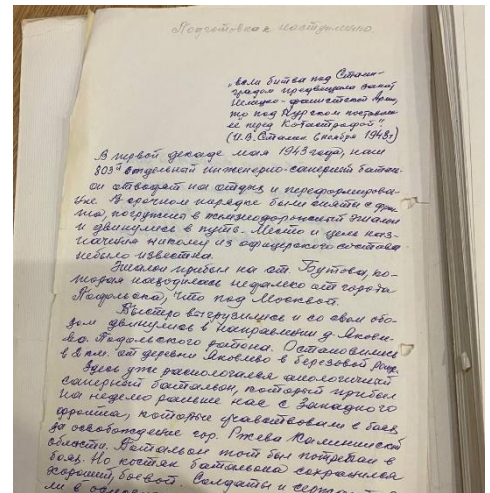 Подготовка к наступлению
"если битва под Сталин-
градом предвещала закат
Немецко-фашистской Армии,
то под Курском поставлен
её перед Катастрофой"
(И.В. Сталин 6 ноября 1943г)
В первой декаде мая 1943 года, наш
803й отдельный инженерно-саперный батал-
он отводят на отдых и переформирова-
ние. В срочном порядке были сняты с фрон-
та, погрузили в железнодорожный эшалон
и двинулись в путь. Место и цель наз-
начения никому из офицерского состава
небыло известна.
Эшалон прибыл на ст. Бутова, ко-
торая находилась недалеко от города
Подольска, что под Москвой.
Быстро выгрузились и со своим обо-
зом двинулись в направлении д. Яковле-
ва. Подольского района. Остановились
в 2 км. от деревни Яковлево в березовой роще.
Здесь уже располагался аналогичный
саперный батальон, который прибыл
на неделю раньше нас с Западного
фронта, которые участвовали в боях
за освобождение гор. Ржева Калининской
области. Батальон тот был потрепан в
боях. Но костяк батальона сохранился
хороший, боевой. Солдаты и
ли в